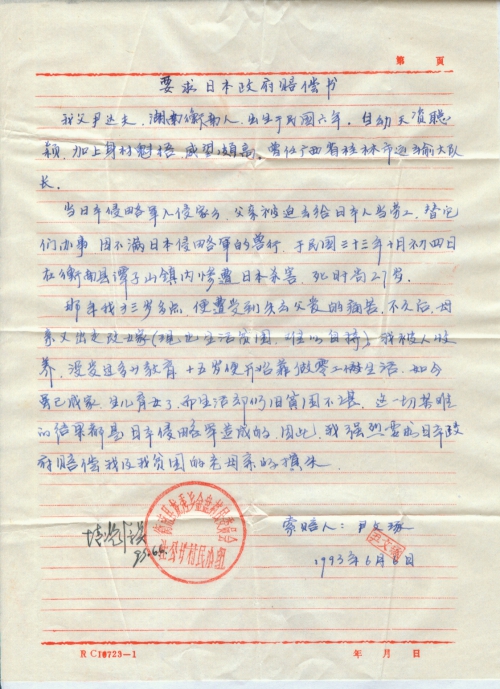 第 页
要求日本政府赔偿书
我父尹达夫，湖南衡南人，出生于民国六年。自幼天资聪
颖，加上身材魁梧，威望颇高。曾任广西省桂林市运输大队
长。
当日本侵略军入侵家乡，父亲被迫去给日本人当劳工，替它
们办事，因不满日本侵略军的兽行，于民国三十三年十月初四日
在衡南县谭子山镇内惨遭日本杀害，死时尚27岁。
那年我才三岁多点，便遭受到失去父爱的痛苦，不久后，母
亲又出走改嫁(现也生活贫困，难以自持)，我被人收
养，没受过多少教育，十五岁便开始靠做零工做生活，如今
虽已成家，生儿育女了，而生活却仍旧贫困不堪，这一切其难
的结果都是日本侵略军造成的，因此，我强烈要求日本政
府赔偿我及我贫困的老母亲的损失。
索赔人：尹文
1993年6月6日
RC10723-1
年 月 日